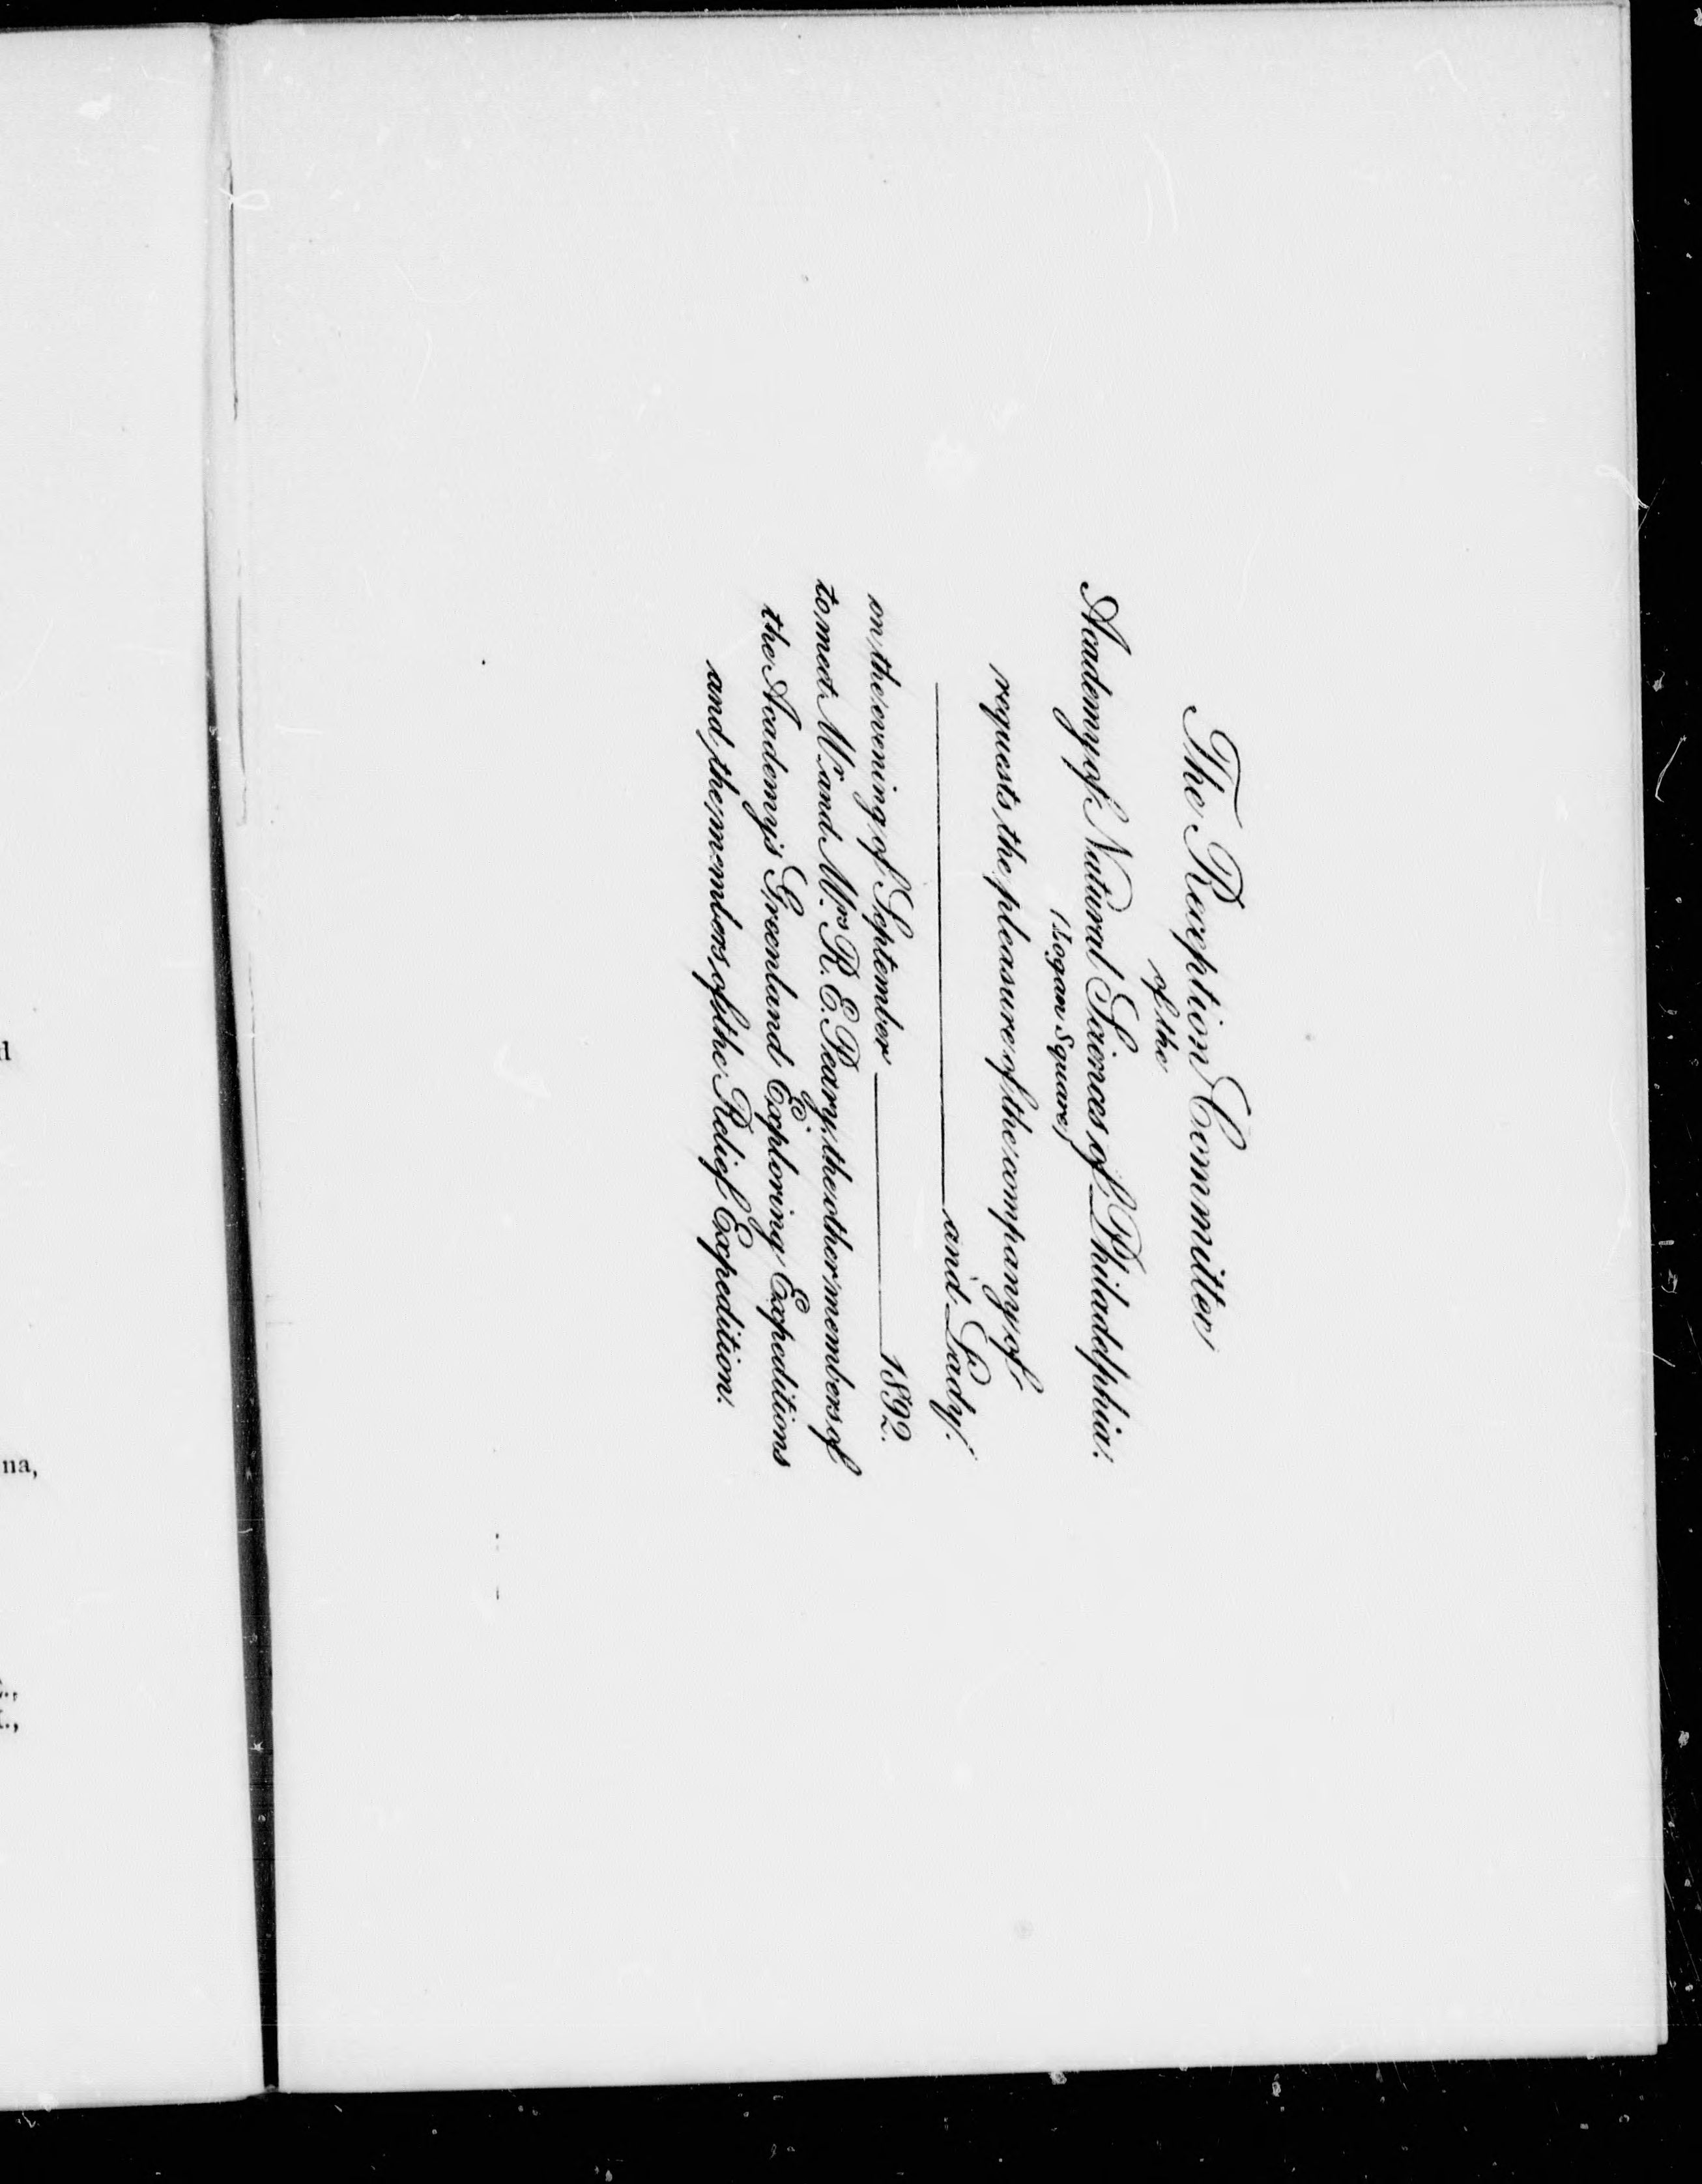 The Reception Committee
of the
Academy of Natural Sciences of Philadelphia.
(Logan Square)
requests the pleasure of the company of
and Lady.
on the evening of September 1892.
to meet Mr. and Mrs. R. E. Peary, the other members of
the Academy's Greenland Exploring Expeditions
and the members of the Relief Expedition.
na,